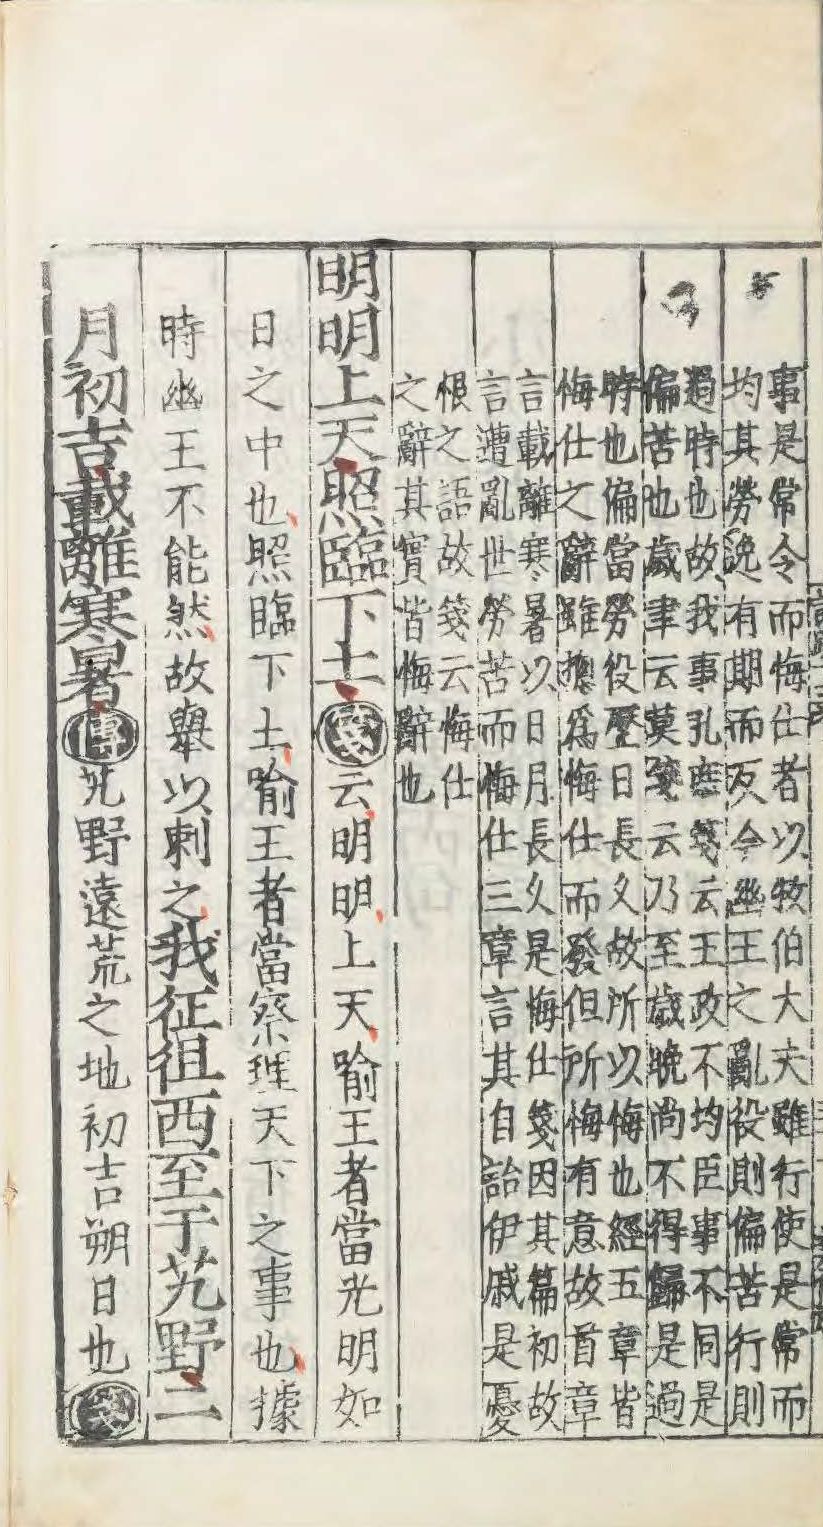 事是常令而悔仕者以牧伯大夫雖行使是常而
均其勞逸有期而反今幽王之亂役則偏苦行則
過時也故我事孔庶箋云王政不均臣事不同是
偏苦也歲聿云莫箋云乃至歲晚尚不得歸是過
時也偏當勞役歷日長久故所以悔也經五章皆
悔仕之辭雖揔為悔仕而發但所悔有意故首章
言載離寒暑以日月長久是悔仕箋因其篇初故
言遭亂世勞苦而悔仕三章言其自詒伊戚是憂
恨之語故箋云悔仕
之辭其實皆悔辭也
明明上天照臨下土箋云明明上天喻王者當光明如
日之中也照臨下土喻王者當察理天下之事也據
時幽王不能然故舉以刺之我征徂西至于艽野二
月初吉載離寒暑傳艽野遠荒之地初吉朔日也箋